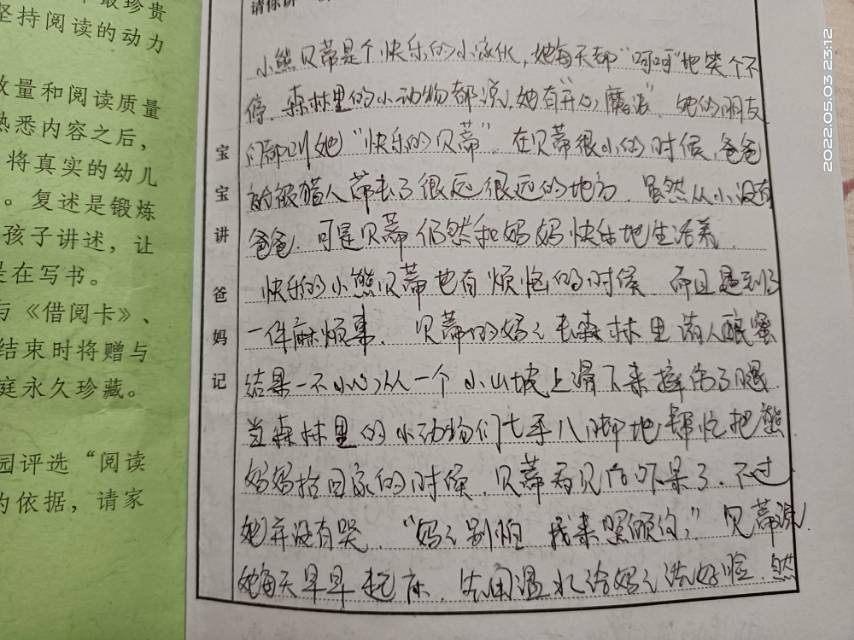 最珍贵
坚持阅读的动力
数量和阅读质量
熟悉内容之后，
将真实的幼儿
。复述是锻炼
孩子讲述，让
是在写书。
与《借阅卡》、
结束时将赠与
庭永久珍藏。
园评选“阅读
的依据，请家
请你讲
宝宝讲爸妈记
小熊贝蒂是个快乐的小家伙，她每天都“呵呵”地笑个不
停。森林里的小动物都说，她有“开心魔法”她的朋友
们都叫她“快乐的贝蒂”。在贝蒂很小的时候，爸爸
就被猎人带去了很远很远的地方。虽然从小没有
爸爸。可是贝蒂仍然和妈妈快乐地生活着。
快乐的小熊贝蒂也有烦恼的时候。而且遇到了
一件麻烦事。贝蒂的妈妈去森林里酿蜜
结果一不小心从一个小山坡上滑下来摔伤了腿
当森林里的小动物们七手八脚地帮忙把熊
妈妈抬回家的时候，贝蒂看见后吓呆了。不过
她并没有哭。“妈妈别怕 我来照顾你，”贝蒂说
她每天早早起床，先用温水给妈妈洗好脸，然
2022.05.03 23:12